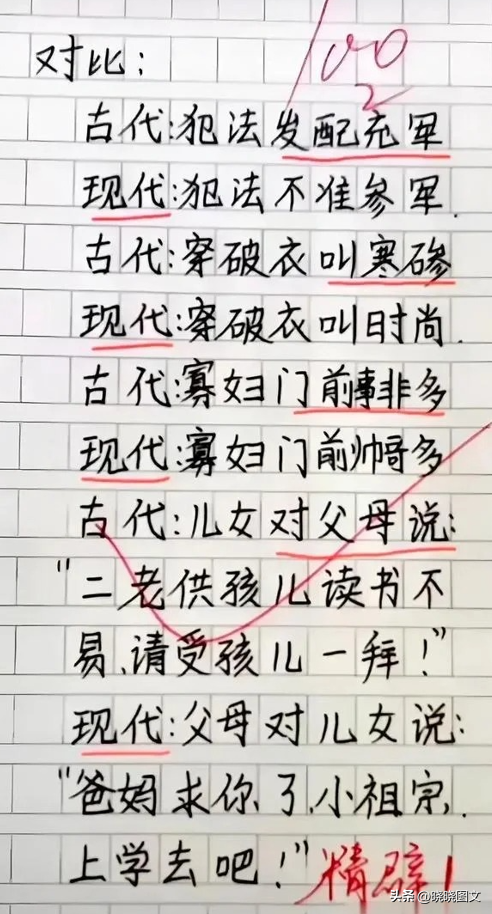 100
对比：
古代：犯法发配充军
现代：犯法不准参军.
古代：穿破衣叫寒碜
现代：穿破衣叫时尚.
古代：寡妇门前事非多
现代：寡妇门前帅哥多
古代：儿女对父母说：
“二老供孩儿读书不
易、请受孩儿一拜！”
现代：父母对儿女说：
“爸妈求你了、小祖宗.
上学去吧！”精辟！
头条 @晓晓图文